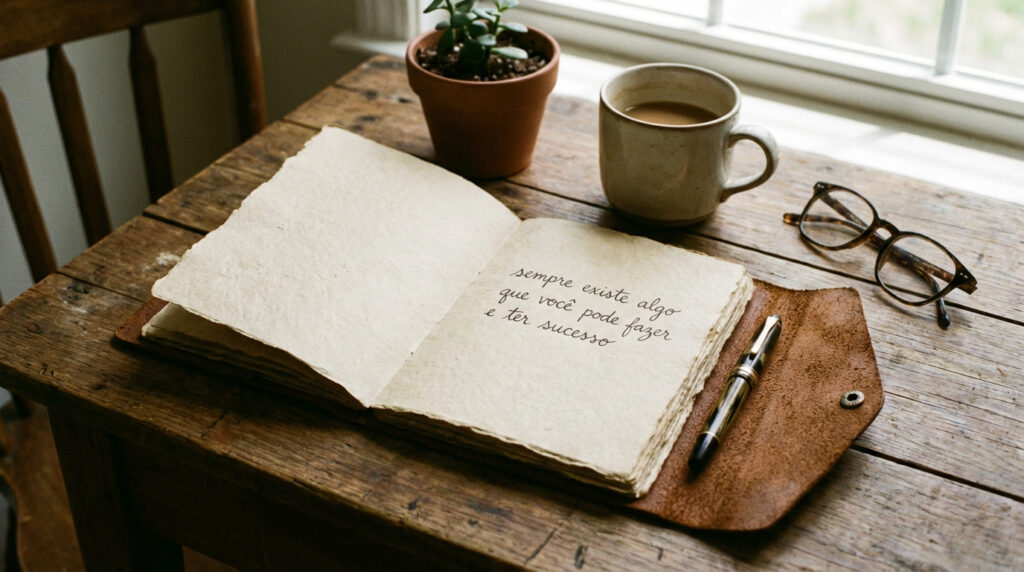 sempre existe algo
que você pode fazer
e ter sucesso